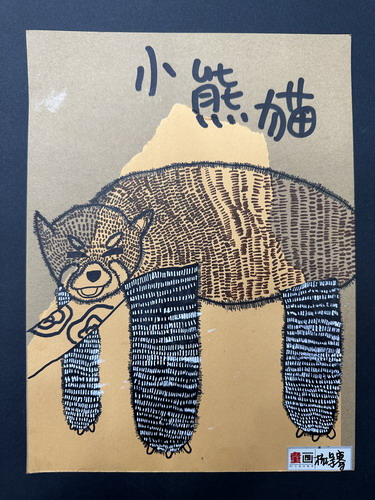 小熊猫
童画